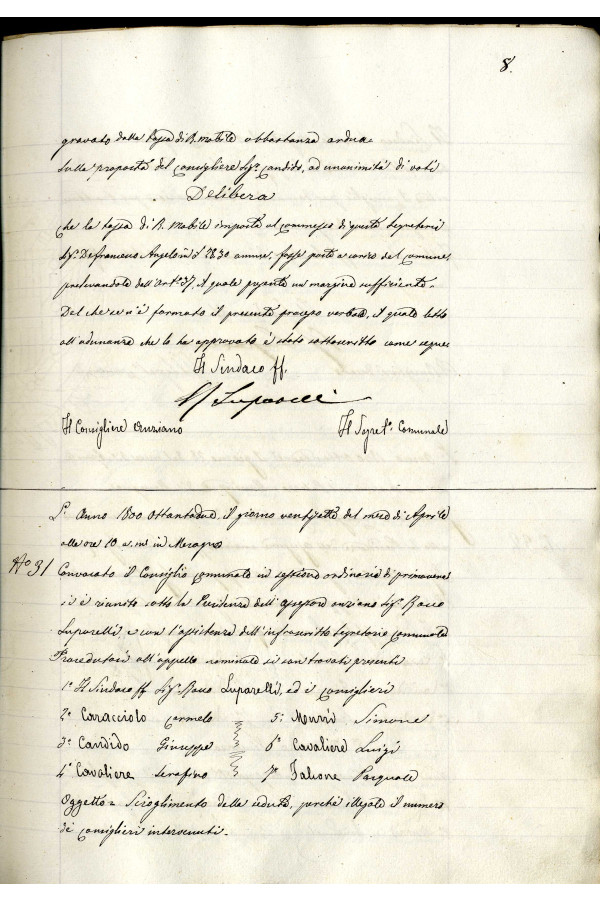 8.
gravato dalla tassa di R. mobile abbastanza ardua
Sulla proposta del Consigliere Sigr. Candido, ad unanimità di voti
Delibera
che la tassa di R. Mobile imposta al commesso di questa Segreteria
Sigr. Defrancesco Angelo in £ 28.30 annue, fosse posta a carico del comune,
prelevandola dall'art.º 37, il quale presenta un margine sufficiente.
Del che se n'è formato il presente processo verbale, il quale letto
all'adunanza che lo ha approvato è stato sottoscritto come segue
Il Sindaco ff.
R Luparelli
Il Consigliere Anziano Il Segret.º Comunale
L'Anno 1800 Ottantadue, il giorno ventisette del mese di Aprile
alle ore 10 a. m. in
Nº 31
Convocato il Consiglio comunale in sessione ordinaria di primavera
si è riunito sotto la Presidenza dell'assessore anziano Sigr. Rocco
Luparelli, e con l'assistenza dell'infrascritto Segretario comunale
Procedutosi all'appello nominale si son trovati presenti
1º Il Sindaco ff Sigr. Rocco Luparelli, ed i consiglieri
2º Caracciolo Carmelo 5º Simone
3º Candido Giuseppe 6º Cavaliere Luigi
4º Cavaliere Serafino 7º Falcone Pasquale
Oggetto = Scioglimento della seduta, perché illegale il numero
di consiglieri intervenuti.